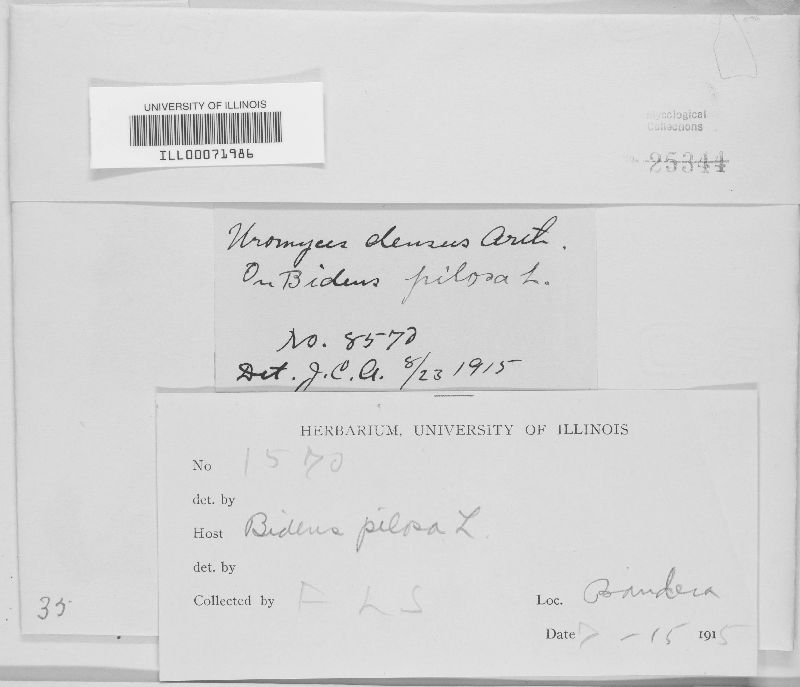 UNIVERSITY OF ILLINOIS
ILL00071986
Mycological
Collections
No. 25344
Uromyces densus Arth.
On Bidens pilosa L.
No. 8570
Det. J.C.A. 8/23 1915
HERBARIUM, UNIVERSITY OF ILLINOIS
No 1570
det. by
Host Bidens pilosa L
det. by
Collected by F L S
Loc. Bandera
Date 7-15 1915
35